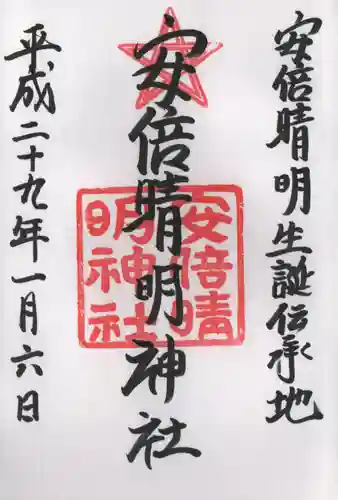 安倍晴明生誕伝承地
安倍晴明神社
安倍晴
明神社
平成二十九年一月六日